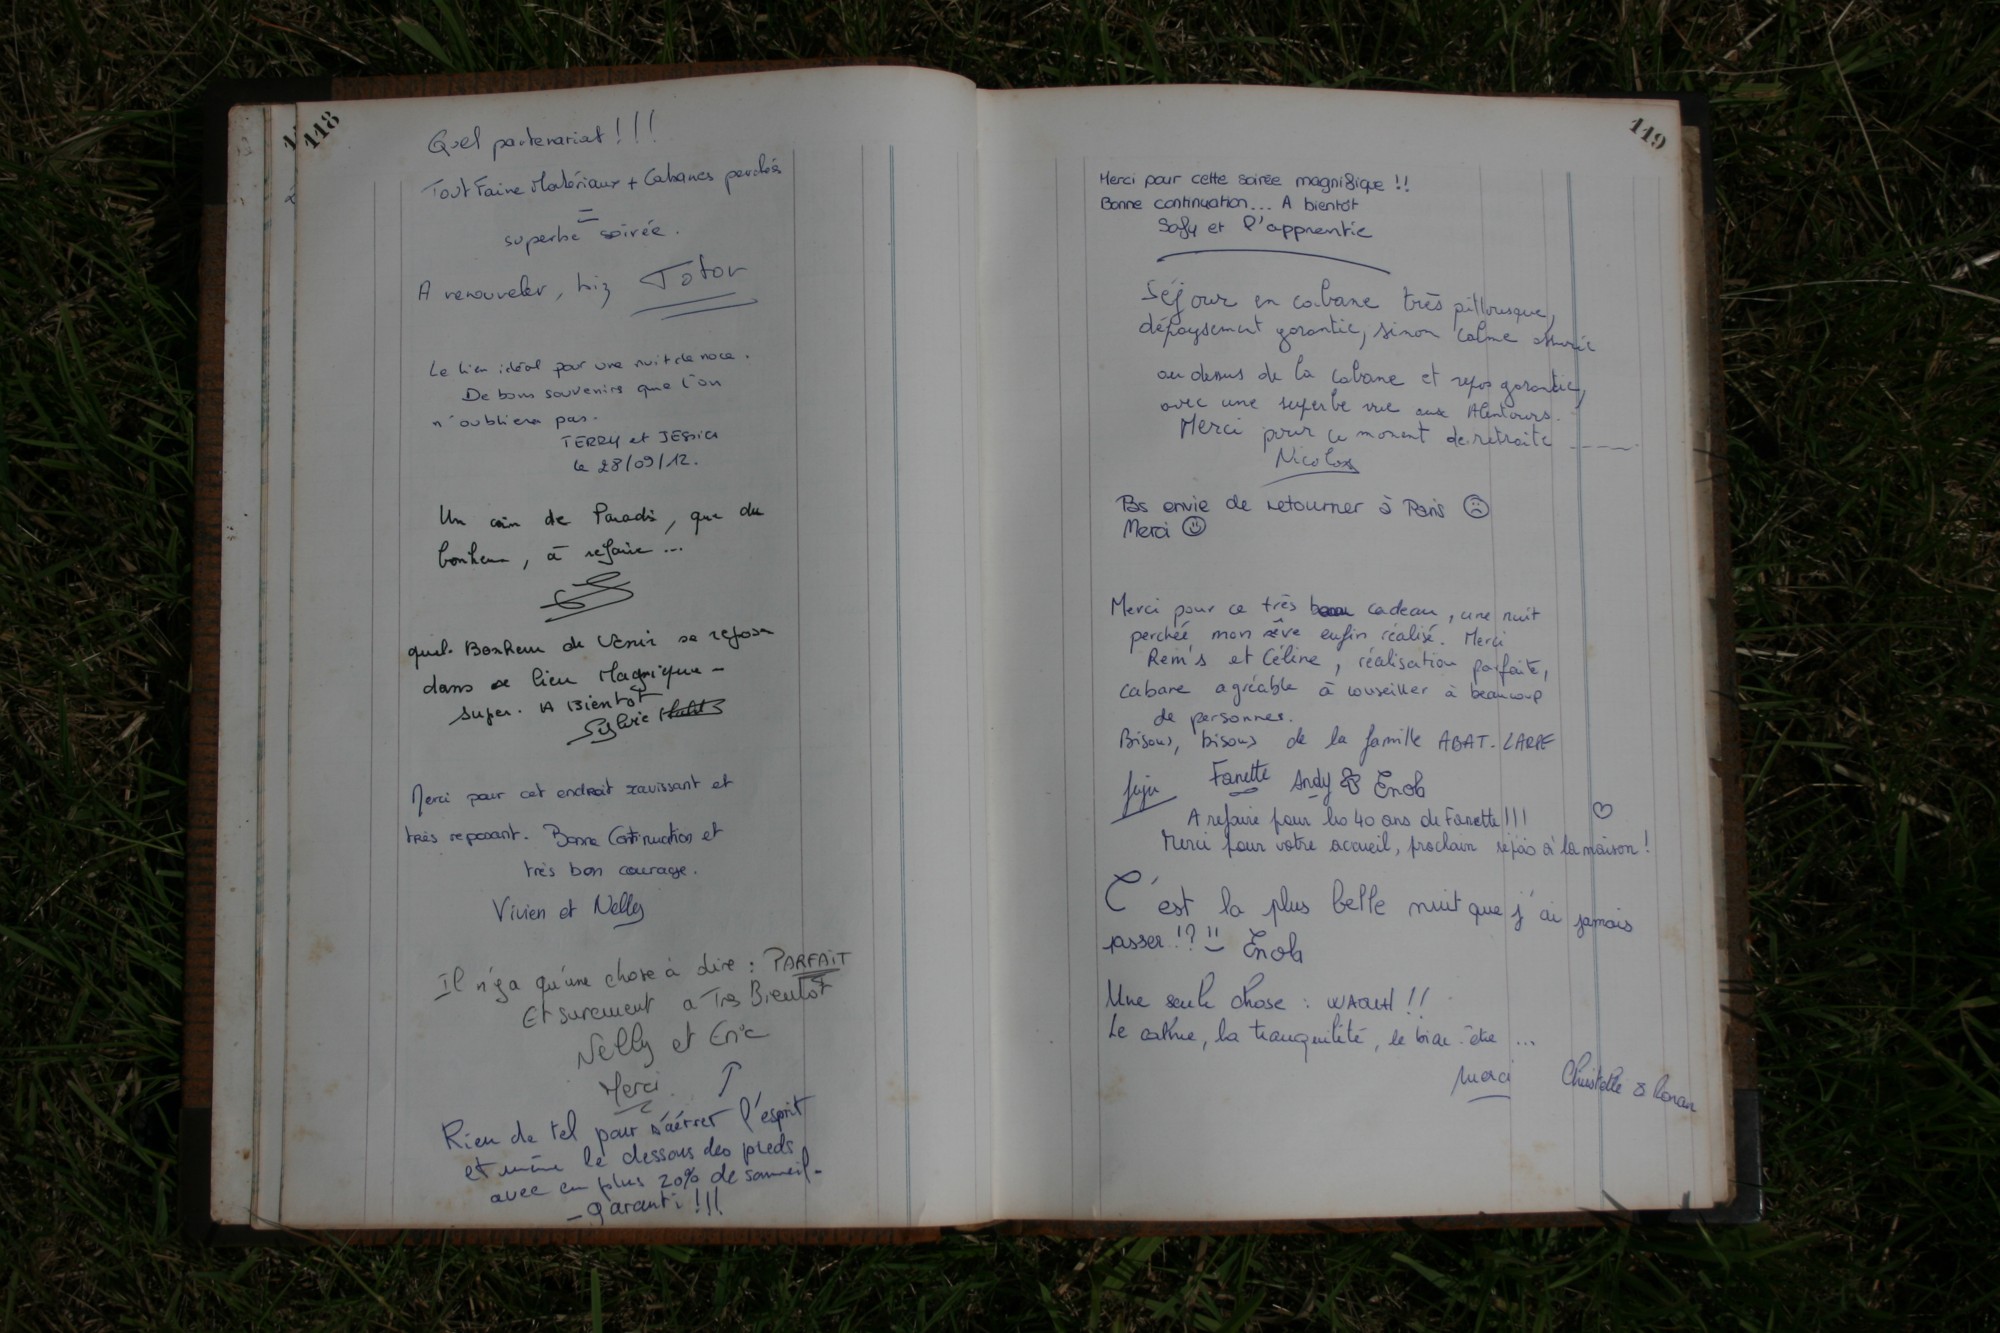 118
Quel partenariat !!!
Tout Faire Matériaux + Cabanes perchées
=
superbe soirée.
A renouveler, biz Totor
Le lieu idéal pour une nuit de noce.
De bons souvenirs que l'on
n'oubliera pas.
TERRY et JESSICA
le 28/09/12.
Un coin de Paradis, que du
bonheur, à refaire ...
quel Bonheur de Venir se reposer
dans ce lieu Magnifique -
super. A Bientôt
Sylvie
Merci pour cet endroit ravissant et
très reposant. Bonne Continuation et
très bon courage.
Vivien et Nelly
Il n'y a qu'une chose à dire : PARFAIT
Et surement a Très Bientôt
Nelly et Eric
Merci
Rien de tel pour s'aérrer l'esprit
et même le dessous des pieds
avec en plus 20% de sommeil -
- garanti !!!
119
Merci pour cette soirée magnifique !!
Bonne continuation... A bientôt
Sofy et l'apprentie
Séjour en cabane très pittoresque,
dépaysement garantie, sinon calme assurée
au dessus de la cabane et repos garantie,
avec une superbe vue aux Alentours.
Merci pour ce moment de retraite
Nicolas
Pas envie de retourner à Paris ☹
Merci ☺
Merci pour ce très cadeau, une nuit
perchée mon rêve enfin réalisé. Merci
Rem's et Céline, réalisation parfaite,
cabane agréable à conseiller à beaucoup
de personnes.
Bisous, bisous de la famille ABAT-LARRE
Juju Fanette Andy & Enob
A refaire pour les 40 ans de Fanette !!! ♡
Merci pour votre accueil, prochain repas à la maison !
C'est la plus belle nuit que j'ai jamais
passer !? Enob
Une seule chose : WAOUH !!
Le calme, la tranquilité, le bien-être ...
Merci Christelle & Ronan